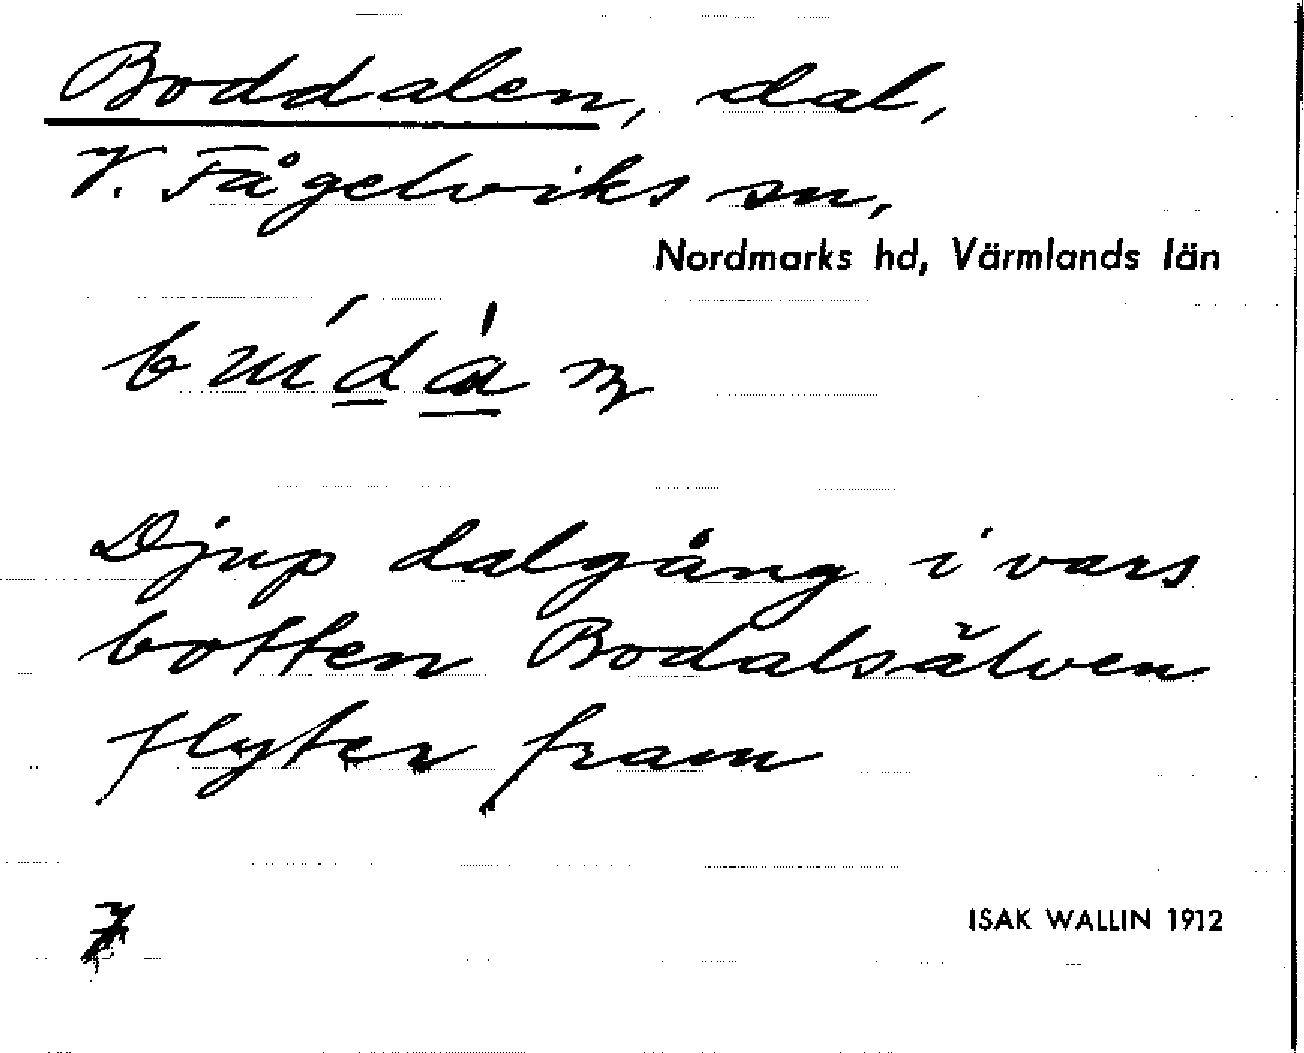 Boddalen, dal,
V. Fågelviks sn,
Nordmarks hd, Värmlands län
Djup dalgång i vars
botten Bodalsälven
flyter fram
7
ISAK WALLIN 1912